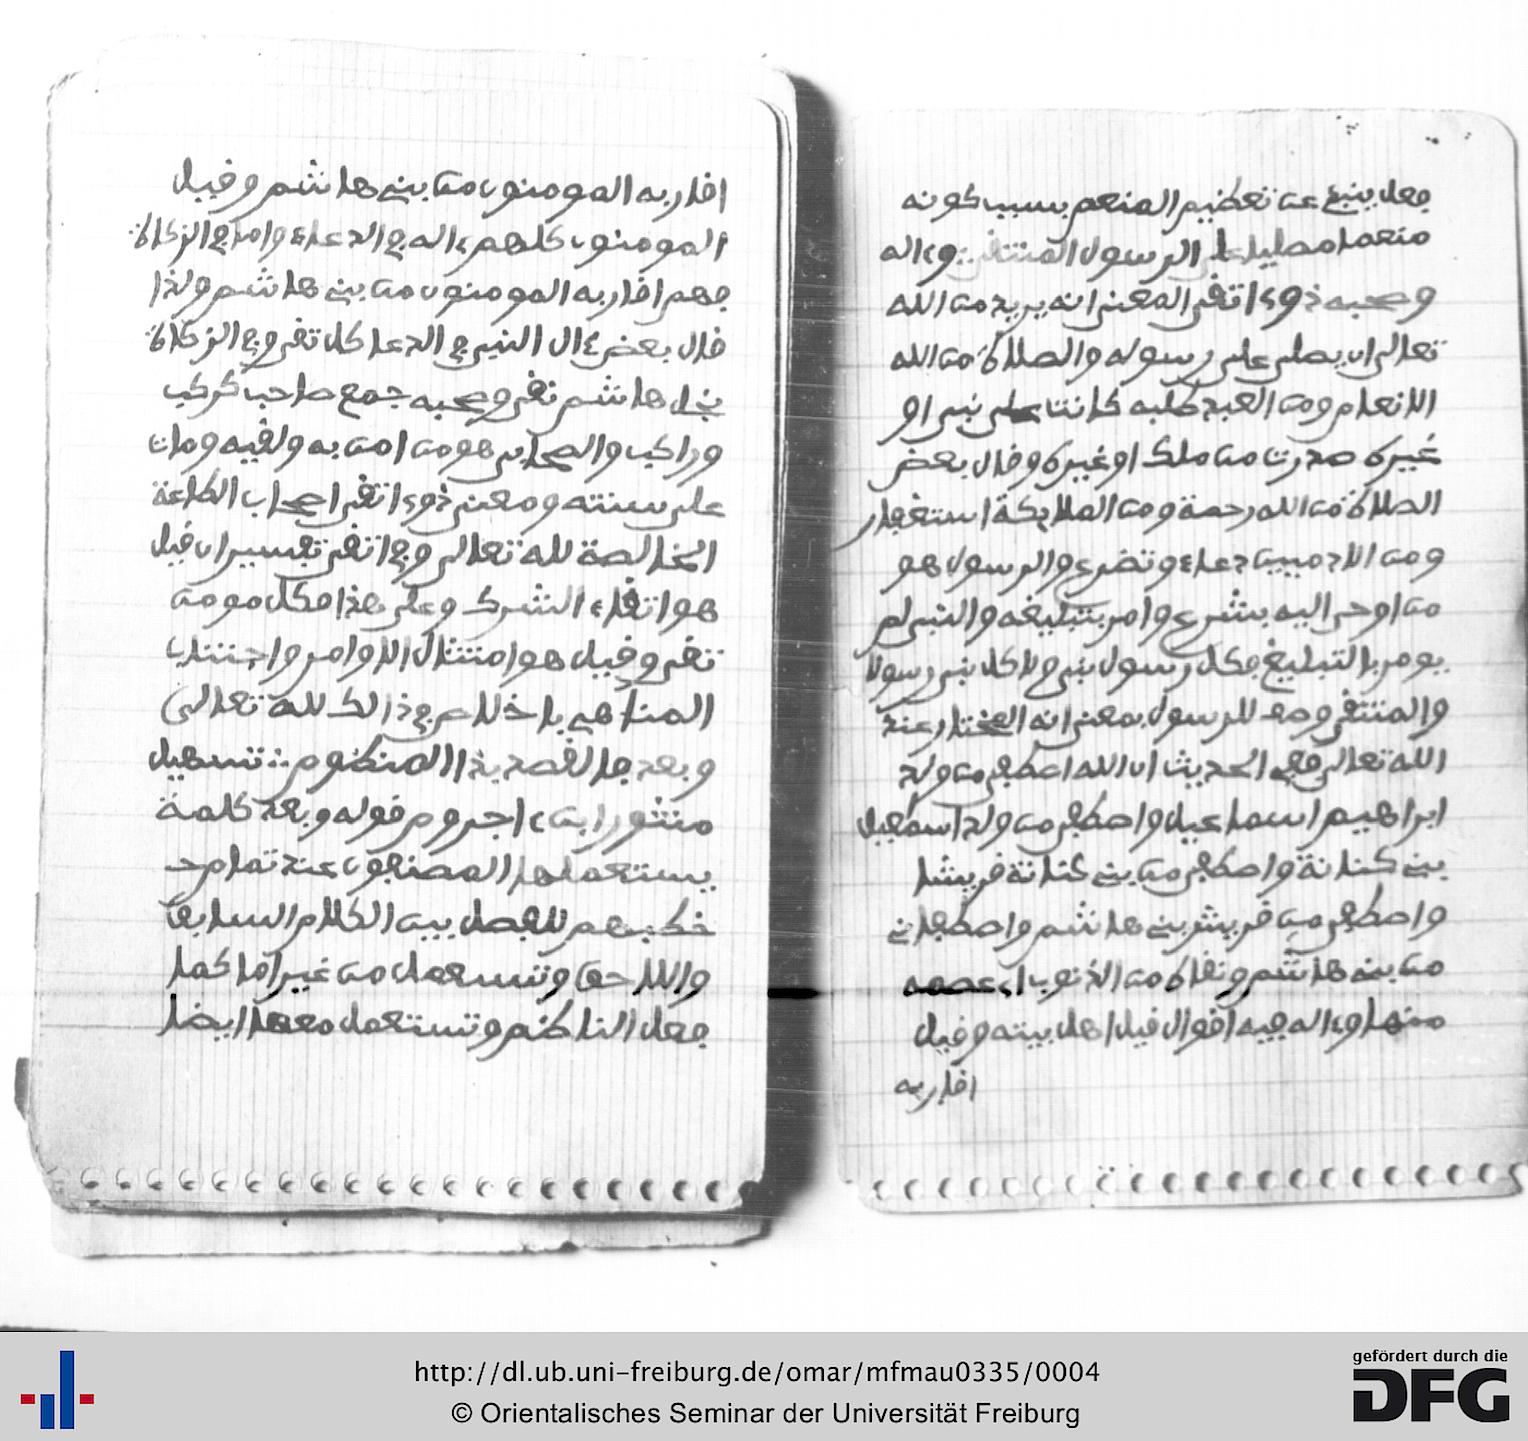 فعل ينبئ عن تعظيم المنعم بسبب كونه
منعما مصليا على الرسول المنتقى وءاله
وصحبه ذوى التقى المعنى انه يريد من الله
تعالى ان يصلى على رسوله والصلاة من الله
الانعام ومن العبد طلبه كانت على نبى او
غيره صدرت من ملك او غيره وقال بعض
الصلاة من الله رحمة ومن الملايكة استغفار
ومن الادميين دعاء وتضرع والرسول هو
من اوحى اليه بشرع وامر بتبليغه والنبى لم
يومر بالتبليغ فكل رسول نبى ولا كل نبى رسولا
والمنتقى وصف للرسول بمعنى انه المختار عند
الله تعالى ففى الحديث ان الله اصطفى من ولد
ابراهيم اسماعيل واصطفى من ولد اسمعيل
بنى كنانة واصطفى من بنى كنانة قريشا
واصطفى من قريش بنى هاشم واصطفانى
من بنى هاشم ونقاه من الذنوب اى عصمه
منها وءاله فيه اقوال قيل اهل بيته وقيل
اقاربه
اقاربه المومنون من بنى هاشم وقيل
المومنون كلهم ءاله فى الدعاء واما فى الزكاة
فهم اقاربه المومنون من بنى هاشم ولذا
قال بعض ءال النبى فى الدعا كل تقى وفى الزكاة
بنى هاشم تقى وصحبه جمع صاحب كركب
وراكب والصحابى هو من امن به ولقيه ومات
على سنته ومعنى ذوى اتقى اصحاب الطاعة
الخالصة لله تعالى وفى اتقى تفسيران قيل
هو اتقاء الشرك وعلى هذا فكل مومن
تقى وقيل هو امتثال الاوامر واجتناب
المناهى باخلاص فى ذالك لله تعالى
وبعد فالقصد بذا المنظوم تسهيل
منثور ابن ءاجروم قوله وبعد كلمة
يستعملها المصنفون عند تمام
خطبهم للفصل بين الكلام السابق
واللاحق وتستعمل من غير اما كما
فعل الناظم وتستعمل معها ايضا
http://dl.ub.uni-freiburg.de/omar/mfmau0335/0004
© Orientalisches Seminar der Universität Freiburg
gefördert durch die
DFG